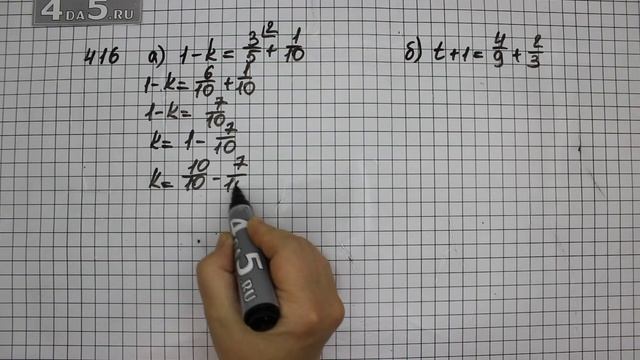 4DA5.RU
416 а) 1 - k = 3/5 |2 + 1/10
1 - k = 6/10 + 1/10
1 - k = 7/10
k = 1 - 7/10
k = 10/10 - 7/1
б) t + 1 = 4/9 + 2/3
4DA5.RU